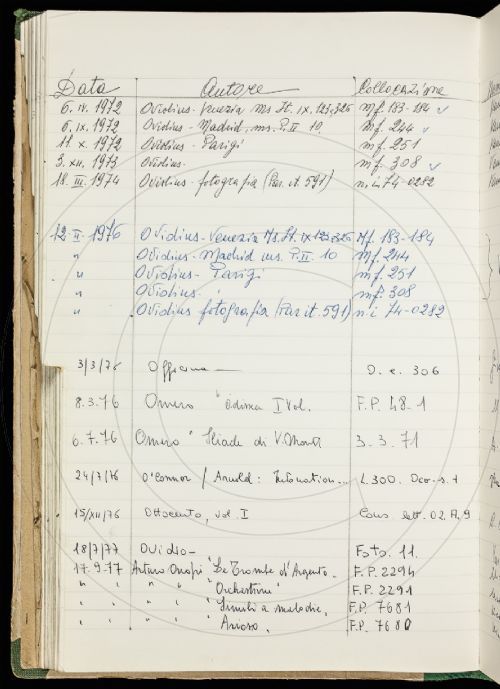 Data Autore Collocazione
6. IV. 1972 Ovidius - Venezia ms It. IX.123,326 mf. 183-184
6. IX. 1972 Ovidius - Madrid, ms. P. II 10 mf. 244
11. X. 1972 Ovidius - Parigi mf. 251
3. XII. 1973 Ovidius. mf. 308
18. III. 1974 Ovidius - fotografia (Par. it. 591) n. i 74-0282
12 II. 1976 Ovidius - Venezia Ms. It. IX 123,326 Mf. 183-184
" Ovidius - Madrid ms. P. II. 10 Mf. 244
" Ovidius - Parigi mf. 251
" Ovidius - mf. 308
" Ovidius fotografia (Par it 591) n i 74-0282
3/3/76 Officina D. e. 306
8.3.76 Omero "Odissea I Vol. F.P. 48. 1
6.7.76 Omero "Iliade di V. Monti 3. 3. 71
24/7/76 O'Connor / Arnold: Intonation... L.300.
15/XII/76 Ottocento, vol. I Cons. lett. 02. A. 9
18/7/77 Ovidio - Foto. 11.
17.9.77 Arturo Onofri "Le Trombe d'Argento. F.P. 2294
" " " " "Orchestrine" F.P. 2291
" " " " "Simili a melodie. F.P. 7681
" " " " Arioso. F.P. 7680